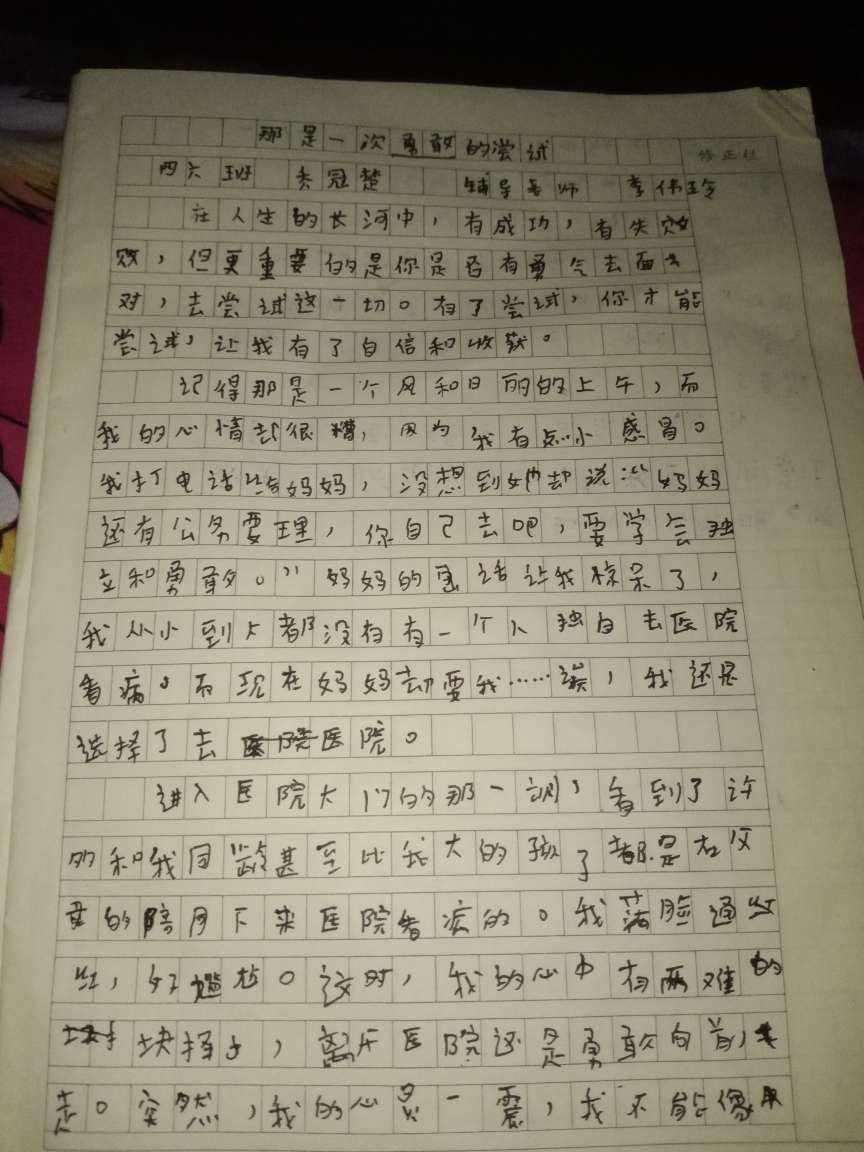 那是一次勇敢的尝试
修正栏
四六班 秀冠楚 辅导老师 李伟玲
在人生的长河中，有成功，有失败
败，但更重要的是你是否有勇气去面
对，去尝试这一切。有了尝试，你才能
尝试，让我有了自信和收获。
记得那是一个风和日丽的上午，而
我的心情却很糟，因为，我有点小感冒。
我打电话给妈妈，没想到她却说“妈妈
还有公务要理，你自己去吧，要学会独
立和勇敢。”妈妈的话让我惊呆了，
我从小到大都没有有一个人独自去医院
看病。而现在妈妈却要我……唉，我还是
选择了去医院。
进入医院大门的那一刻，看到了许
多和我同龄甚至比我大的孩子都是在父
母的陪同下来医院看病的。我满脸通红
红，好尴尬。这时，我的心中有两难的
抉择，离开医院还是勇敢向前
走。突然，我的心灵一震，我不能像